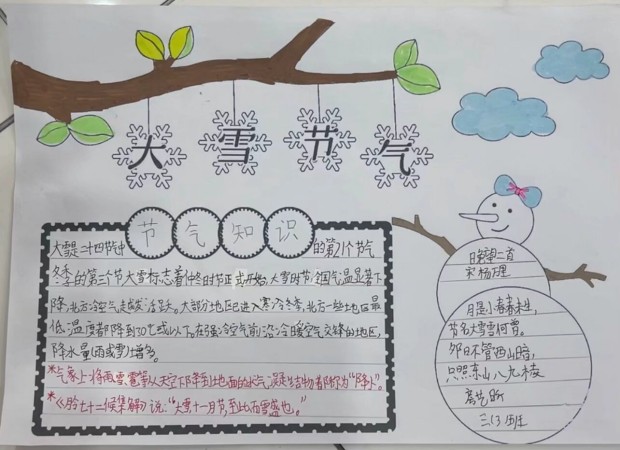 大雪节气
节气知识
大雪是二十四节气中的第21个节气
冬季的第三个节大雪标志着仲冬时节正式开始,大雪时节,全国气温显著下
降,北方冷空气走频活跃。大部分地区已进入寒冷冬季,北方一些地区最
低温度都降到30℃或以下。在强冷空气前沿冷暖空气交锋的地区,
降水量(雨或雪)增多。
*气象上将雨、雪、雹等从天空下降到地面的水气凝结物都称为“降水”。
*《月令七十二候集解》说:“大雪十一月节,至此而雪盛也。”
晚望二首
宋 杨万里
月是小春春未生,
节名大雪雪何曾。
夕阳不管西山暗,
只照东山八九棱
三(3)班